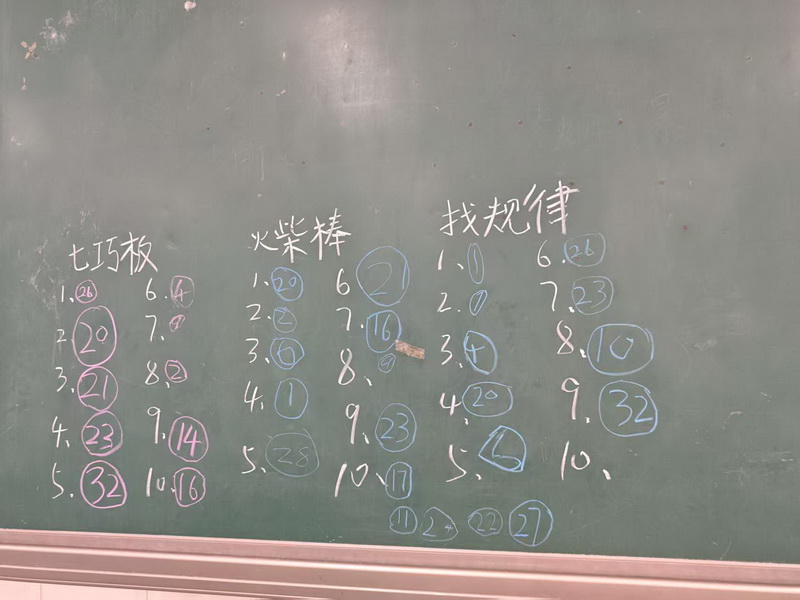 七巧板
1、26
2、20
3、21
4、23
5、32
6、4
7、
8、2
9、14
10、16
火柴棒
1、20
2、2
3、6
4、1
5、28
6 21
7、16
8、9
9、23
10、17
找规律
1、1
2、1
3、4
4、20
5、
6、26
7、23
8、10
9、32
10、
11 24 22 27